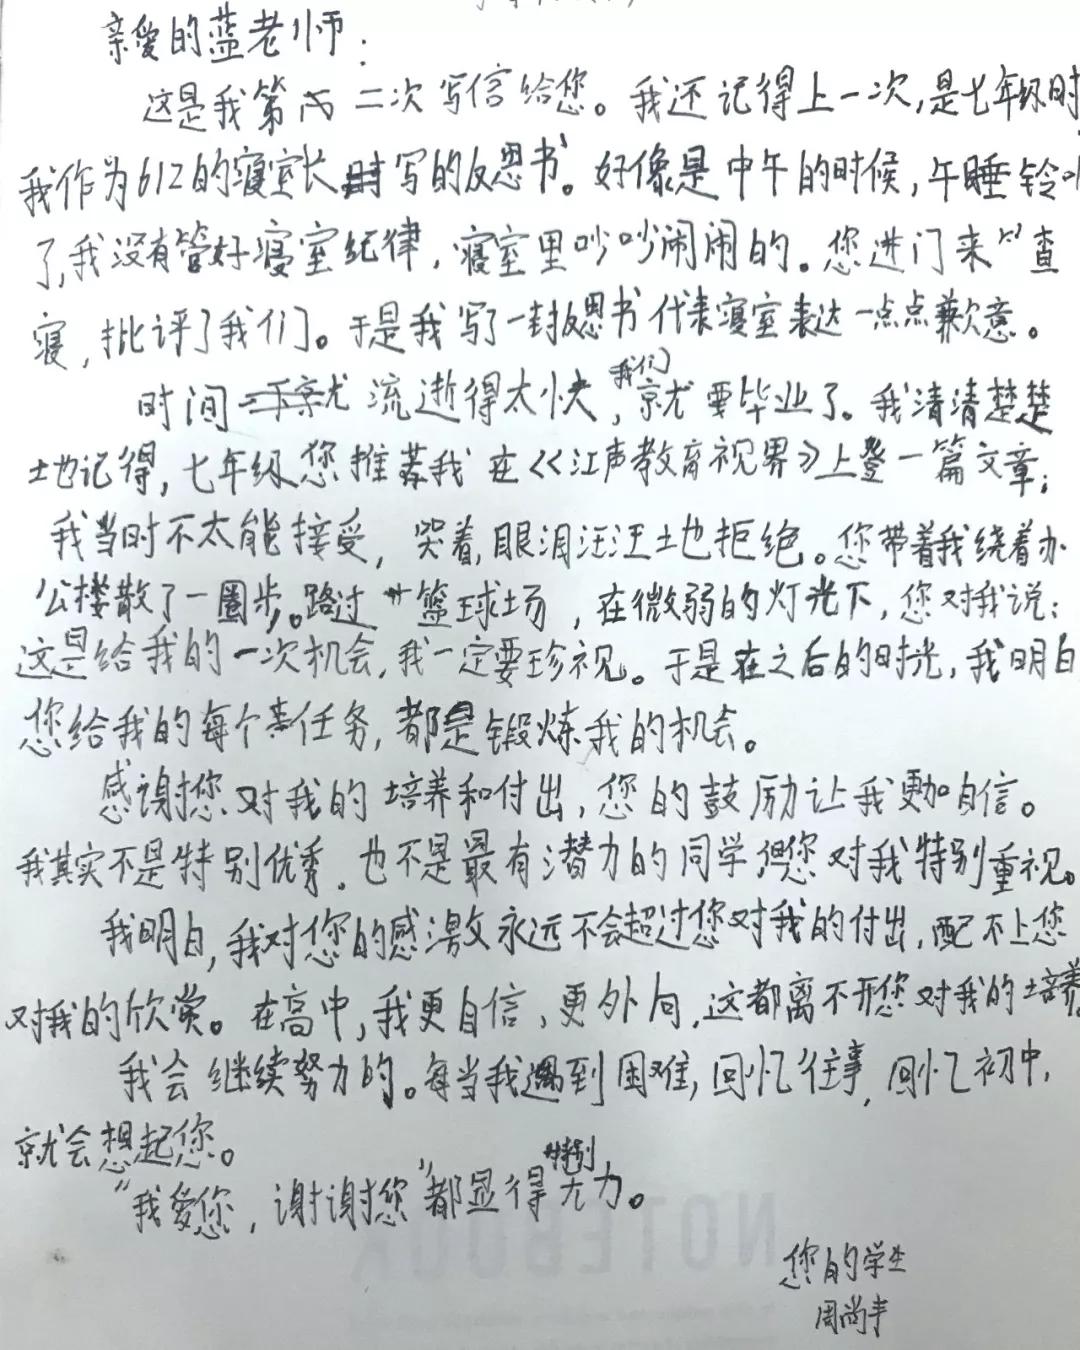 亲爱的蓝老师:
这是我第二次写信给您。我还记得上一次,是七年级时
我作为612的寝室长写的反思书。好像是中午的时候,午睡铃
了,我没有管好寝室纪律,寝室里吵吵闹闹的。您进门来查
寝,批评了我们。于是我写了一封反思书代表寝室表达一点点歉意。
时间流逝得太快,我们就要毕业了。我清清楚楚
地记得,七年级您推荐我在《江声教育视界》上登一篇文章;
我当时不太能接受,哭着,眼泪汪汪地拒绝。您带着我绕着办
公楼散了一圈步。路过篮球场,在微弱的灯光下,您对我说:
这是给我的一次机会,我一定要珍视。于是在之后的时光,我明白
您给我的每个任务,都是锻炼我的机会。
感谢您对我的培养和付出,您的鼓励让我更加自信。
我其实不是特别优秀,也不是最有潜力的同学,但您对我特别重视。
我明白,我对您的感激永远不会超过您对我的付出,配不上您
对我的欣赏。在高中,我更自信,更外向,这都离不开您对我的培养。
我会继续努力的。每当我遇到困难,回忆往事,回忆初中,
就会想起您。
"我爱您,谢谢您"都显得特别无力。
您的学生
周尚丰
NOTEBOOK